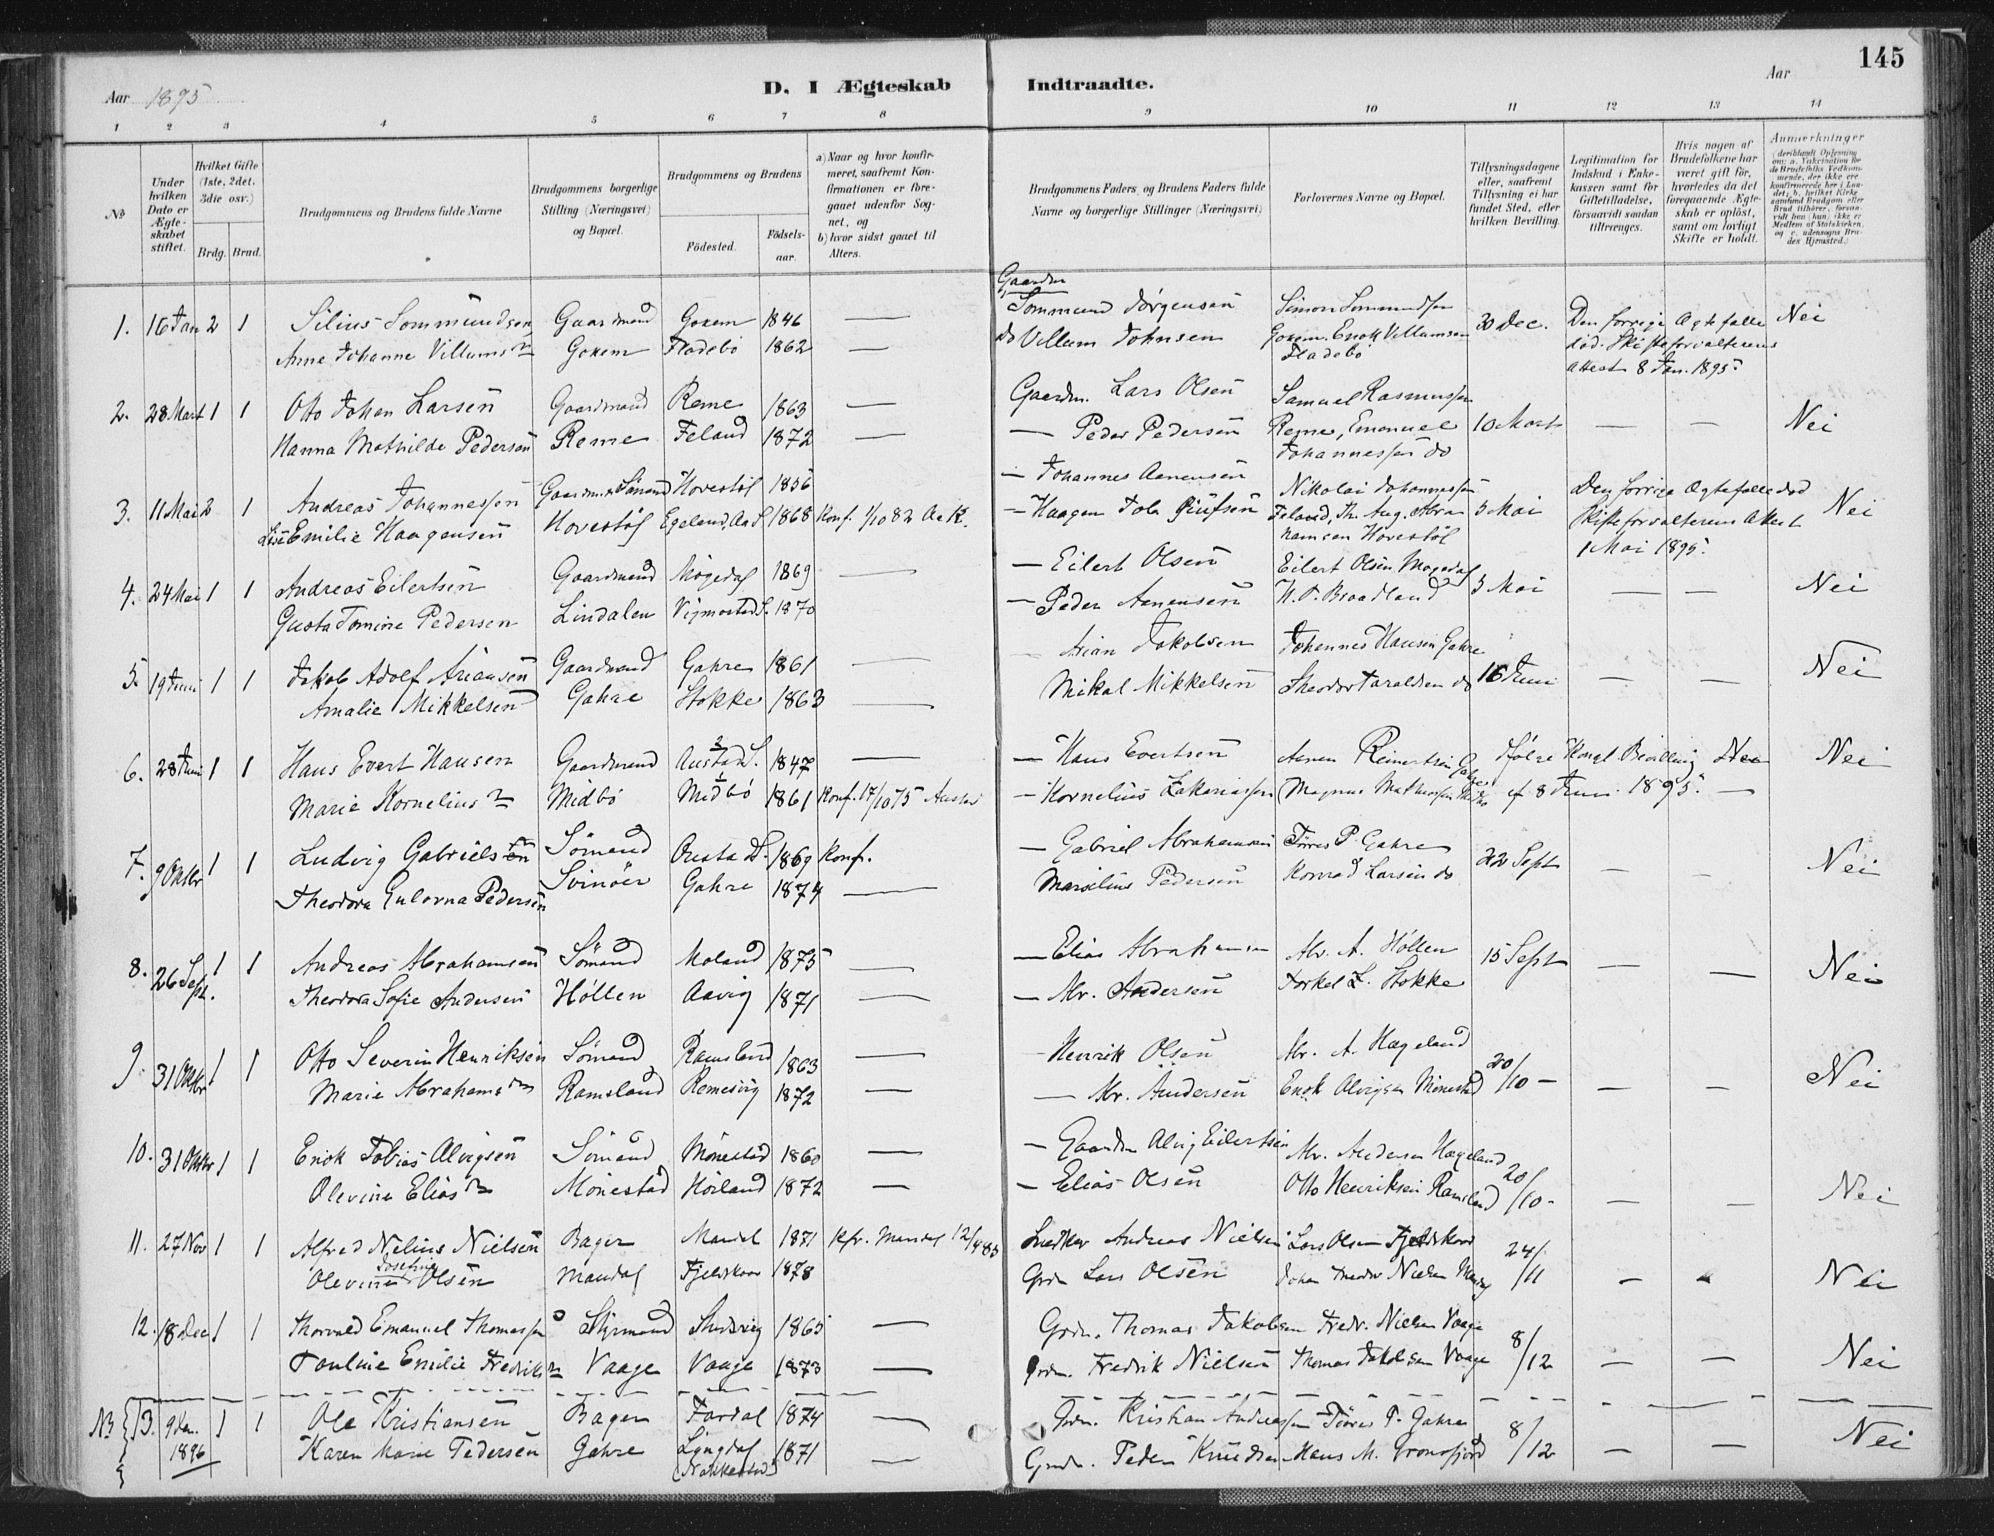 145
Aar 1895
D. I Ægteskab Indtraadte.
Aar
1 2 3 4 5 6 7 8 9 10 11 12 13 14
No
Under hvilken Dato er Ægteskabet stiftet.
Hvilket Gifte (1ste, 2det, 3die osv.)
Brdg. Brud.
Brudgommens og Brudens fulde Navne
Brudgommens borgerlige Stilling (Næringsvei) og Bopæl.
Brudgommens og Brudens
Fødested.
Fødselsaar.
a) Naar og hvor konfirmeret, saafremt Konfirmationen er foregaaet udenfor Sognet, og
b) hvor sidst gaaet til Alters.
Brudgommens Faders og Brudens Faders fulde Navne og borgerlige Stillinger (Næringsvei)
Forlovernes Navne og Bopæl.
Tillysningsdagene eller, saafremt Tillysning ei har fundet Sted, efter hvilken Bevilling.
Legitimation for Indskud i Enkekassen samt for Giftetilladelse, forsaavidt saadan tiltrænges.
Hvis nogen af Brudefolkene har været gift før, hvorledes da det foregaaende Ægteskab er opløst, samt om lovligt Skifte er holdt.
Anmerkninger
Gaardm
1. 16 Jan 2 1 Silius Sommundsen Gaardmand Goxem 1846 — Sommund Jørgensen Simon Sommundsen 30 Dec. Den forrige Ægtefælle Nei
Anne Johanne Villumsdtr Goxem Fladebö 1862 — do Villum Johnsen Goxem. Enok Villumsen død. Skifteforvalterens
Fladebö Attest 8 Jan. 1895.
2. 28 Mart 1 1 Otto Johan Larsen Gaardmand Reme 1863 — Gaardm. Lars Olsen Samuel Rasmussen
Hanna Mathilde Pedersen Reme Feland 1872 — — Peder Pedersen Reme, Emanuel 10 Mart — — Nei
Johannessen do
3. 11 Mai 2 1 Andreas Johannessen Gaardm & Sömand Hovestöl 1856 — Johannes Aanensen Nikolai Johannessen Den forrige Ægtefælle død
Emilie Haagensen Hovestöl Egeland, Aa S. 1868 Konf. 1/10 82 Aa K. — Haagen Feland, Th. Aug. Abra 5 Mai Skifteforvalterens Attest Nei
hamsen Hovestöl 1 Mai 1895.
4. 24 Mai 1 1 Andreas Eilertsen Gaardmand Mögedal 1869 — — Eilert Olsen Eilert Olsen Mögedal
Gusta Tomine Pedersen Lindalen Vigmostad S. 1870 — Peder Aanensen Braadland 5 Mai — — Nei
5. 19 Juni 1 1 Jakob Adolf Ariansen Gaardmand Gahre 1861 — — Arian Jakobsen Johannes Hansen Gahre
Amalie Mikkelsen Gahre Stokke 1863 — Mikal Mikkelsen Theodor Taraldsen do 16 Juni — — Nei
6. 28 Juni 1 1 Hans Evert Hansen Gaardmand Austad S. 1847 — — Hans Evertsen Aanen Reinertsen Gahre Ifölge Kongl Bevilling Nei
Marie Korneliusdtr Midbö Midbö 1861 Konf. 17/10 75 — Kornelius Zakariassen Magnus Mathiassen af 8 Juni 1895. —
7. 9 Oktbr 1 1 Ludvig Gabrielsen Sömand 1869 Konf. — Gabriel Abrahamsen Törres P. Gahre 22 Sept — — Nei
Theodora Pedersen Svinöer Gahre 1874 — Marselius Pedersen Konrad Larsen do
8. 26 Sept. 1 1 Andreas Abrahamsen Sömand Moland 1875 — — Elias Abrahamsen Abr. A. Höllen 15 Sept — — Nei
Theodora Sofie Andersen Höllen Aavig 1871 — — Abr. Andersen Torkel Z. Stokke
9 31 Oktbr 1 1 Otto Severin Henriksen Sömand Ramsland 1863 — Henrik Olsen Abr. A. Hageland 20/10 — — — Nei
Marie Abrahamsdtr Ramsland Remesvig 1872 — — Abr. Andersen Enok Alvigsen Mönestad
10. 31 Oktbr 1 1 Enok Tobias Alvigsen Sömand Mönestad 1860 — — Gaardm Alvig Eilertsen Abr. Andersen Hageland 20/10 — — — Nei
Olevine Eliasdtr Mönestad Höiland 1872 — — Elias Olsen Otto Henriksen Ramsland
11. 27 Nov 1 1 Alfred Nelius Nielsen Bager Mandal 1871 Kfr. Mandal 12/4 85 Snedker Andreas Nielsen Lars Olsen Fjeldskaar 24/11 — — Nei
Olevine Josefine Olsen Mandal Fjeldskaar 1878 Grdm Lars Olsen Johan Nielsen
12. 18 Dec 1 1 Thorvald Emanuel Thomassen Styrmand 1865 — Grdm. Thomas Jakobsen Fredr. Nielsen Vaage 8/12 — — Nei
Pauline Emilie Fredriksdtr Vaage Vaage 1873 — Grdm. Fredrik Nielsen Thomas Jakobsen Vaage
NB 13. 9 Jan. 1896 1 1 Ole Kristiansen Bager Fardal 1874 — Grdm. Kristian Andreassen Törres P. Gahre 8/12 — — Nei
Karen Marie Pedersen Gahre Lyngdal 1871 — Grdm. Peder Knudsen Hans M. Gronsfjord